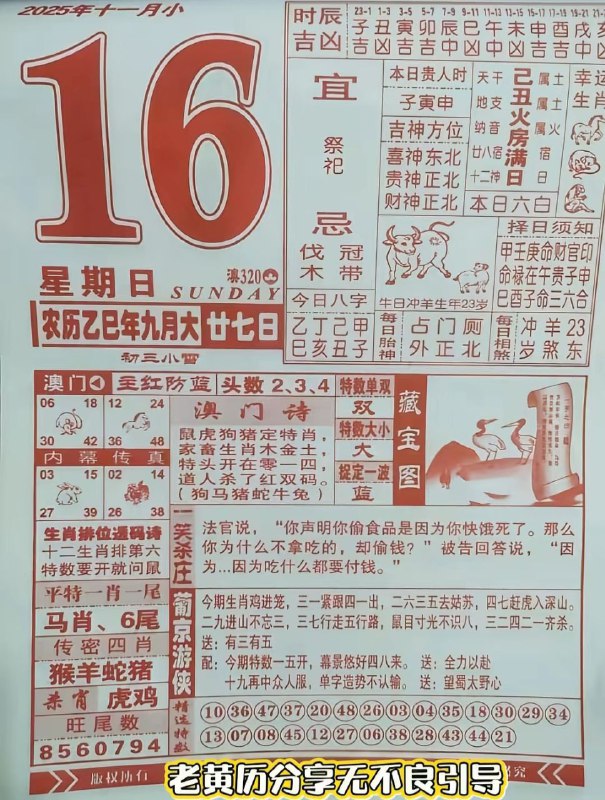 2025年十一月小
16
星期日
澳320
SUNDAY
农历乙巳年九月大 廿七日
初三小雪
时辰 吉凶
23-1 1-3 3-5 5-7 7-9 9-11 11-13 13-15 15-17 17-19 19-21 21-
子 丑 寅 卯 辰 巳 午 未 申 酉 戌
宜
祭祀
忌
伐木 冠带
今日八字
乙丁己甲
巳亥丑子
本日贵人时
子寅申
吉神方位
喜神东北
贵神正北
财神正北
天干 己 属土
地支 丑 属土
纳音 火 属火
廿八宿 房 宿
十二神 满 日
本日六白
幸运生肖
牛日冲羊生年23岁
择日须知
甲壬庚命财官印
命禄在午贵子申
巳酉子命三六合
每日胎神
占门厕
外正北
每日相煞
冲羊23
岁煞东
澳门 主红防蓝 头数2、3、4
06 18
30 42
12 24
36 48
内幕传真
03 15
27 39
02 14
26 38
澳门诗
鼠虎狗猪定特肖，
家畜生肖木金土，
特头开在零一四，
道人杀了红双码。
（狗马猪蛇牛兔）
特数单双
双
特数大小
大
捉定一波
蓝
藏宝图
生肖排位透码诗
十二生肖排第六
特数要开就问鼠
平特一肖一尾
马肖、6尾
传密四肖
猴羊蛇猪
杀肖 虎鸡
旺尾数
8560794
一笑杀庄
法官说，“你声明你偷食品是因为你快饿死了。那么
你为什么不拿吃的，却偷钱？”被告回答说，“因
为…因为吃什么都要付钱。”
葡京游侠
今期生肖鸡进笼，三一紧跟四一出，二六三五去姑苏，四七赶虎入深山。
二九进山不忘三，三七行走五行路，鼠目寸光不识八，三二四二一齐杀。
送：有三有五
配：今期特数一五开，幕景悠好四八来。 送：全力以赴
十九再中众人服，单字造势不认输。 送：望蜀太野心
精选特数
10 36 47 37 20 48 26 03 04 35 18 30 29 34
13 07 08 45 12 27 06 38 28 43 44 21
版权所有
究
老黄历分享无不良引导